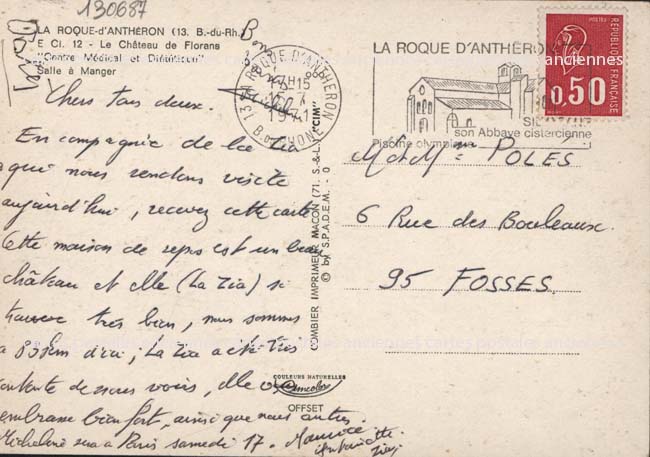 130687
LA ROQUE-d'ANTHÉRON (13. B.-du-Rh.)
E Cl. 12 - Le Château de Florans
"Centre Médical et Diététique"
Salle à Manger
Chers tous deux.
En compagnie de la tia
que nous rendons visite
aujourd'hui, recevez cette carte
Cette maison de repos est un beau
château et elle (La Tia) se
trouve très bien, nous sommes
a 83km d'ici, La Tia a été très
contente de nous voir, elle vous
embrasse bien fort, ainsi que nous autres.
Micheline sera à Paris samedi 17. Maurice
Antoinette
COMBIER IMPRIMEUR MACON (71. S.-&-L.) "CIM"
© by S.P.A.D.E.M. - 0
COULEURS NATURELLES
OFFSET
LA ROQUE D'ANTHERON
17H15
1971
B. DU RHONE
LA ROQUE D'ANTHERON
son Abbaye cistercienne
Piscine olympique
POSTES
RÉPUBLIQUE FRANÇAISE
0,50
M et Mme POLES
6 Rue des Bouleaux.
95 FOSSES.
cartes postales anciennes